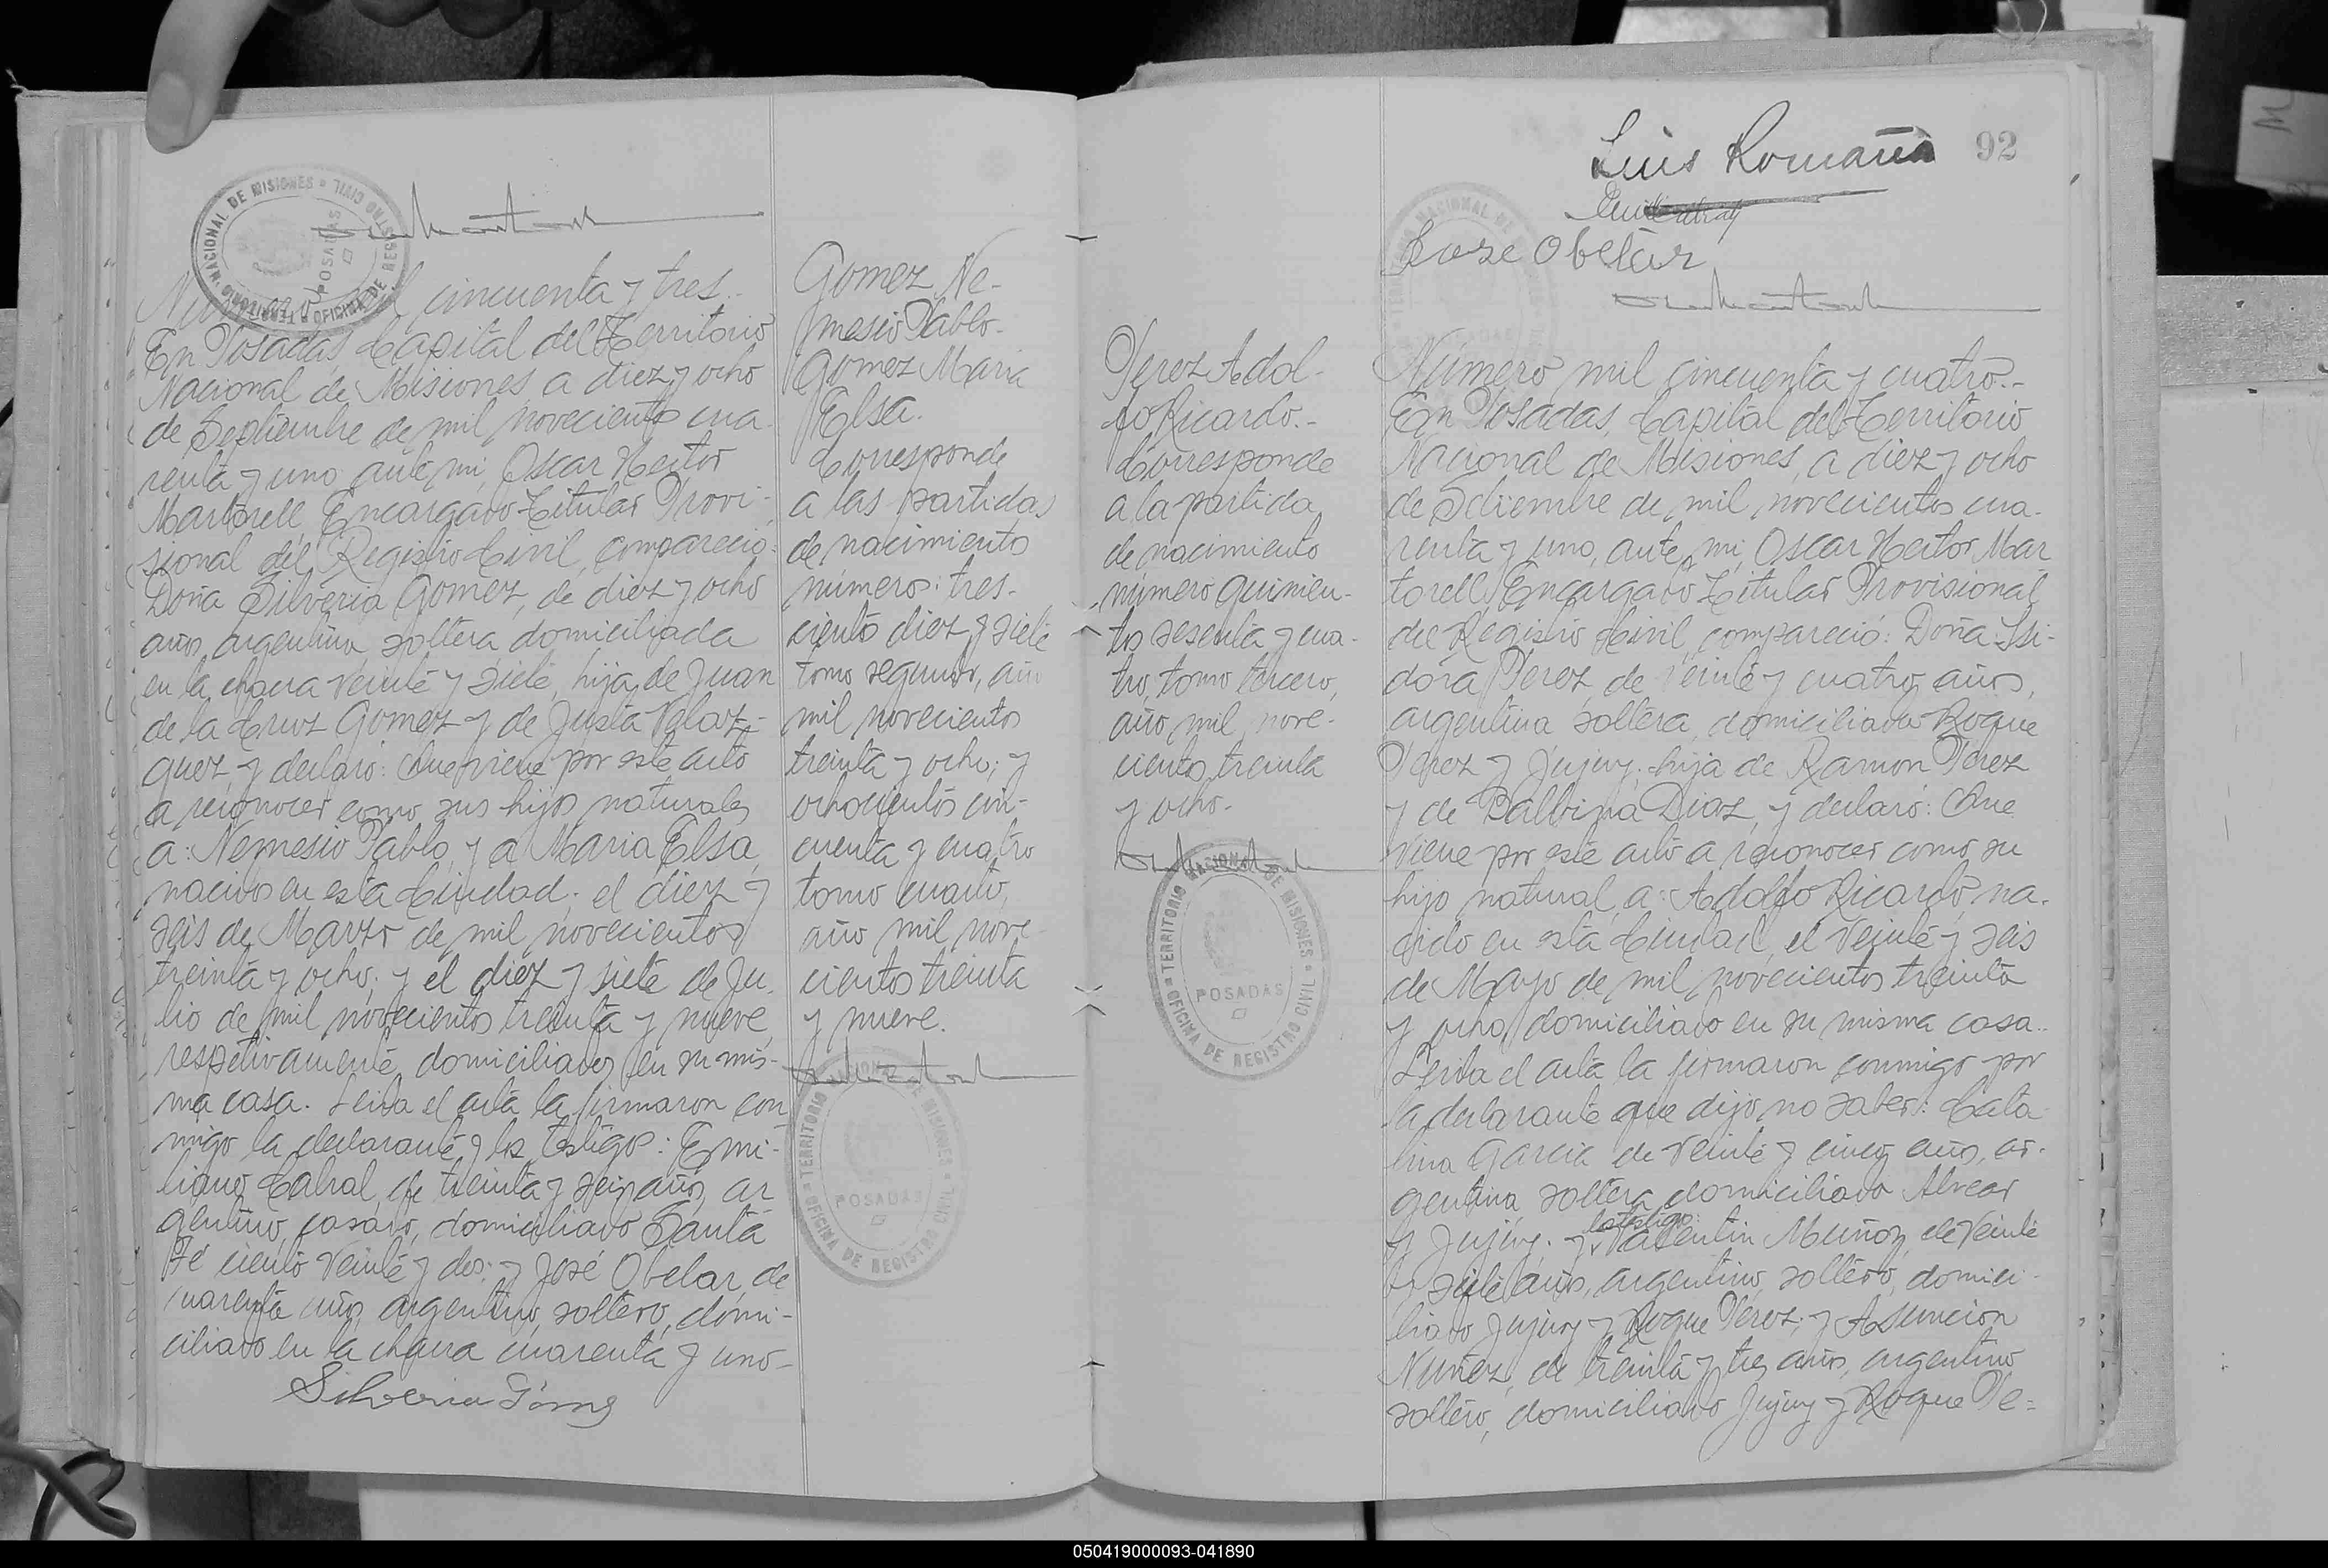 TERRITORIO NACIONAL DE MISIONES
OFICINA DE REGISTRO CIVIL
POSADAS
Número mil cincuenta y tres.-
En Posadas, Capital del Territorio
Nacional de Misiones, a diez y ocho
de Septiembre de mil noveciento cua-
renta y uno, ante mi, Oscar Hector
Martorell Encargado Titular Provi-
sional del Registro Civil, compareció:
Doña Silveria Gomez, de diez y ocho
años, argentina, soltera domiciliada
en la chacra veinte y siete, hija de Juan
de la Cruz Gomez y de Justa Velaz-
quez, y declaró: Que viene por este acto
a reconocer como sus hijos naturales
a: Nemesio Pablo, y a Maria Elsa,
nacidos en esta Ciudad; el diez y
seis de Marzo de mil novecientos
treinta y ocho; y el diez y siete de Ju-
lio de mil novecientos treinta y nueve,
respetivamente, domiciliados en su mis-
ma casa. Leida el acta la firmaron con
migo la declarante y los testigos: Emi-
liano Cabral, de treinta y seis años, ar
gentino, casado, domiciliado Santa
Fé ciento veinte y dos; y José Obelar, de
cuarenta años, argentino, soltero, domi-
ciliado en la chacra cuarenta y uno-
Silveria Gómez
Gomez Ne-
mesio Pablo-
Gomez Maria
Elsa.
Corresponde
a las partidas
de nacimiento
número: tres-
ciento diez y siete
tomo segundo, año
mil novecientos
treinta y ocho; y
ochocientos cin-
cuenta y cuatro
tomo cuarto,
año mil nove-
cientos treinta
y nueve.
TERRITORIO NACIONAL DE MISIONES
OFICINA DE REGISTRO CIVIL
POSADAS
Perez Adol-
fo Ricardo.-
Corresponde
a la partida
de nacimiento
número quinien-
tos sesenta y cua-
tro, tomo tercero,
año mil nove-
ciento treinta
y ocho.-
TERRITORIO NACIONAL DE MISIONES
OFICINA DE REGISTRO CIVIL
POSADAS
92
Luis Romaña
Jose Obelar
Número mil cincuenta y cuatro.-
En Posadas, Capital del Territorio
Nacional de Misiones, a diez y ocho
de Setiembre de mil novecientos cua-
renta y uno, ante mi, Oscar Hector Mar
torell, Encargado Titular Provisional
del Registro Civil, compareció: Doña Isi-
dora Perez, de veinte y cuatro años,
argentina soltera, domiciliada Roque
Perez y Jujuy; hija de Ramon Perez
y de Balbina Diaz, y declaró: Que
viene por este acto a reconocer como su
hijo natural, a: Adolfo Ricardo, na-
cido en esta Ciudad, el veinte y seis
de Mayo de mil novecientos treinta
y ocho, domiciliado en su misma casa..
Leida el acta la firmaron conmigo por
la declarante que dijo no saber: Cata-
lina Garcia de veinte y cinco años, ar-
gentina soltera domiciliada Alvear
y Jujuy. y los testigos: Valentin Muñoz, de veinte
y siete años, argentino, soltero, domici-
liado Jujuy y Roque Perez; y Asuncion
Nuñez, de treinta y tres años, argentino
soltero, domiciliado Jujuy y Roque Pe=
050419000093-041890